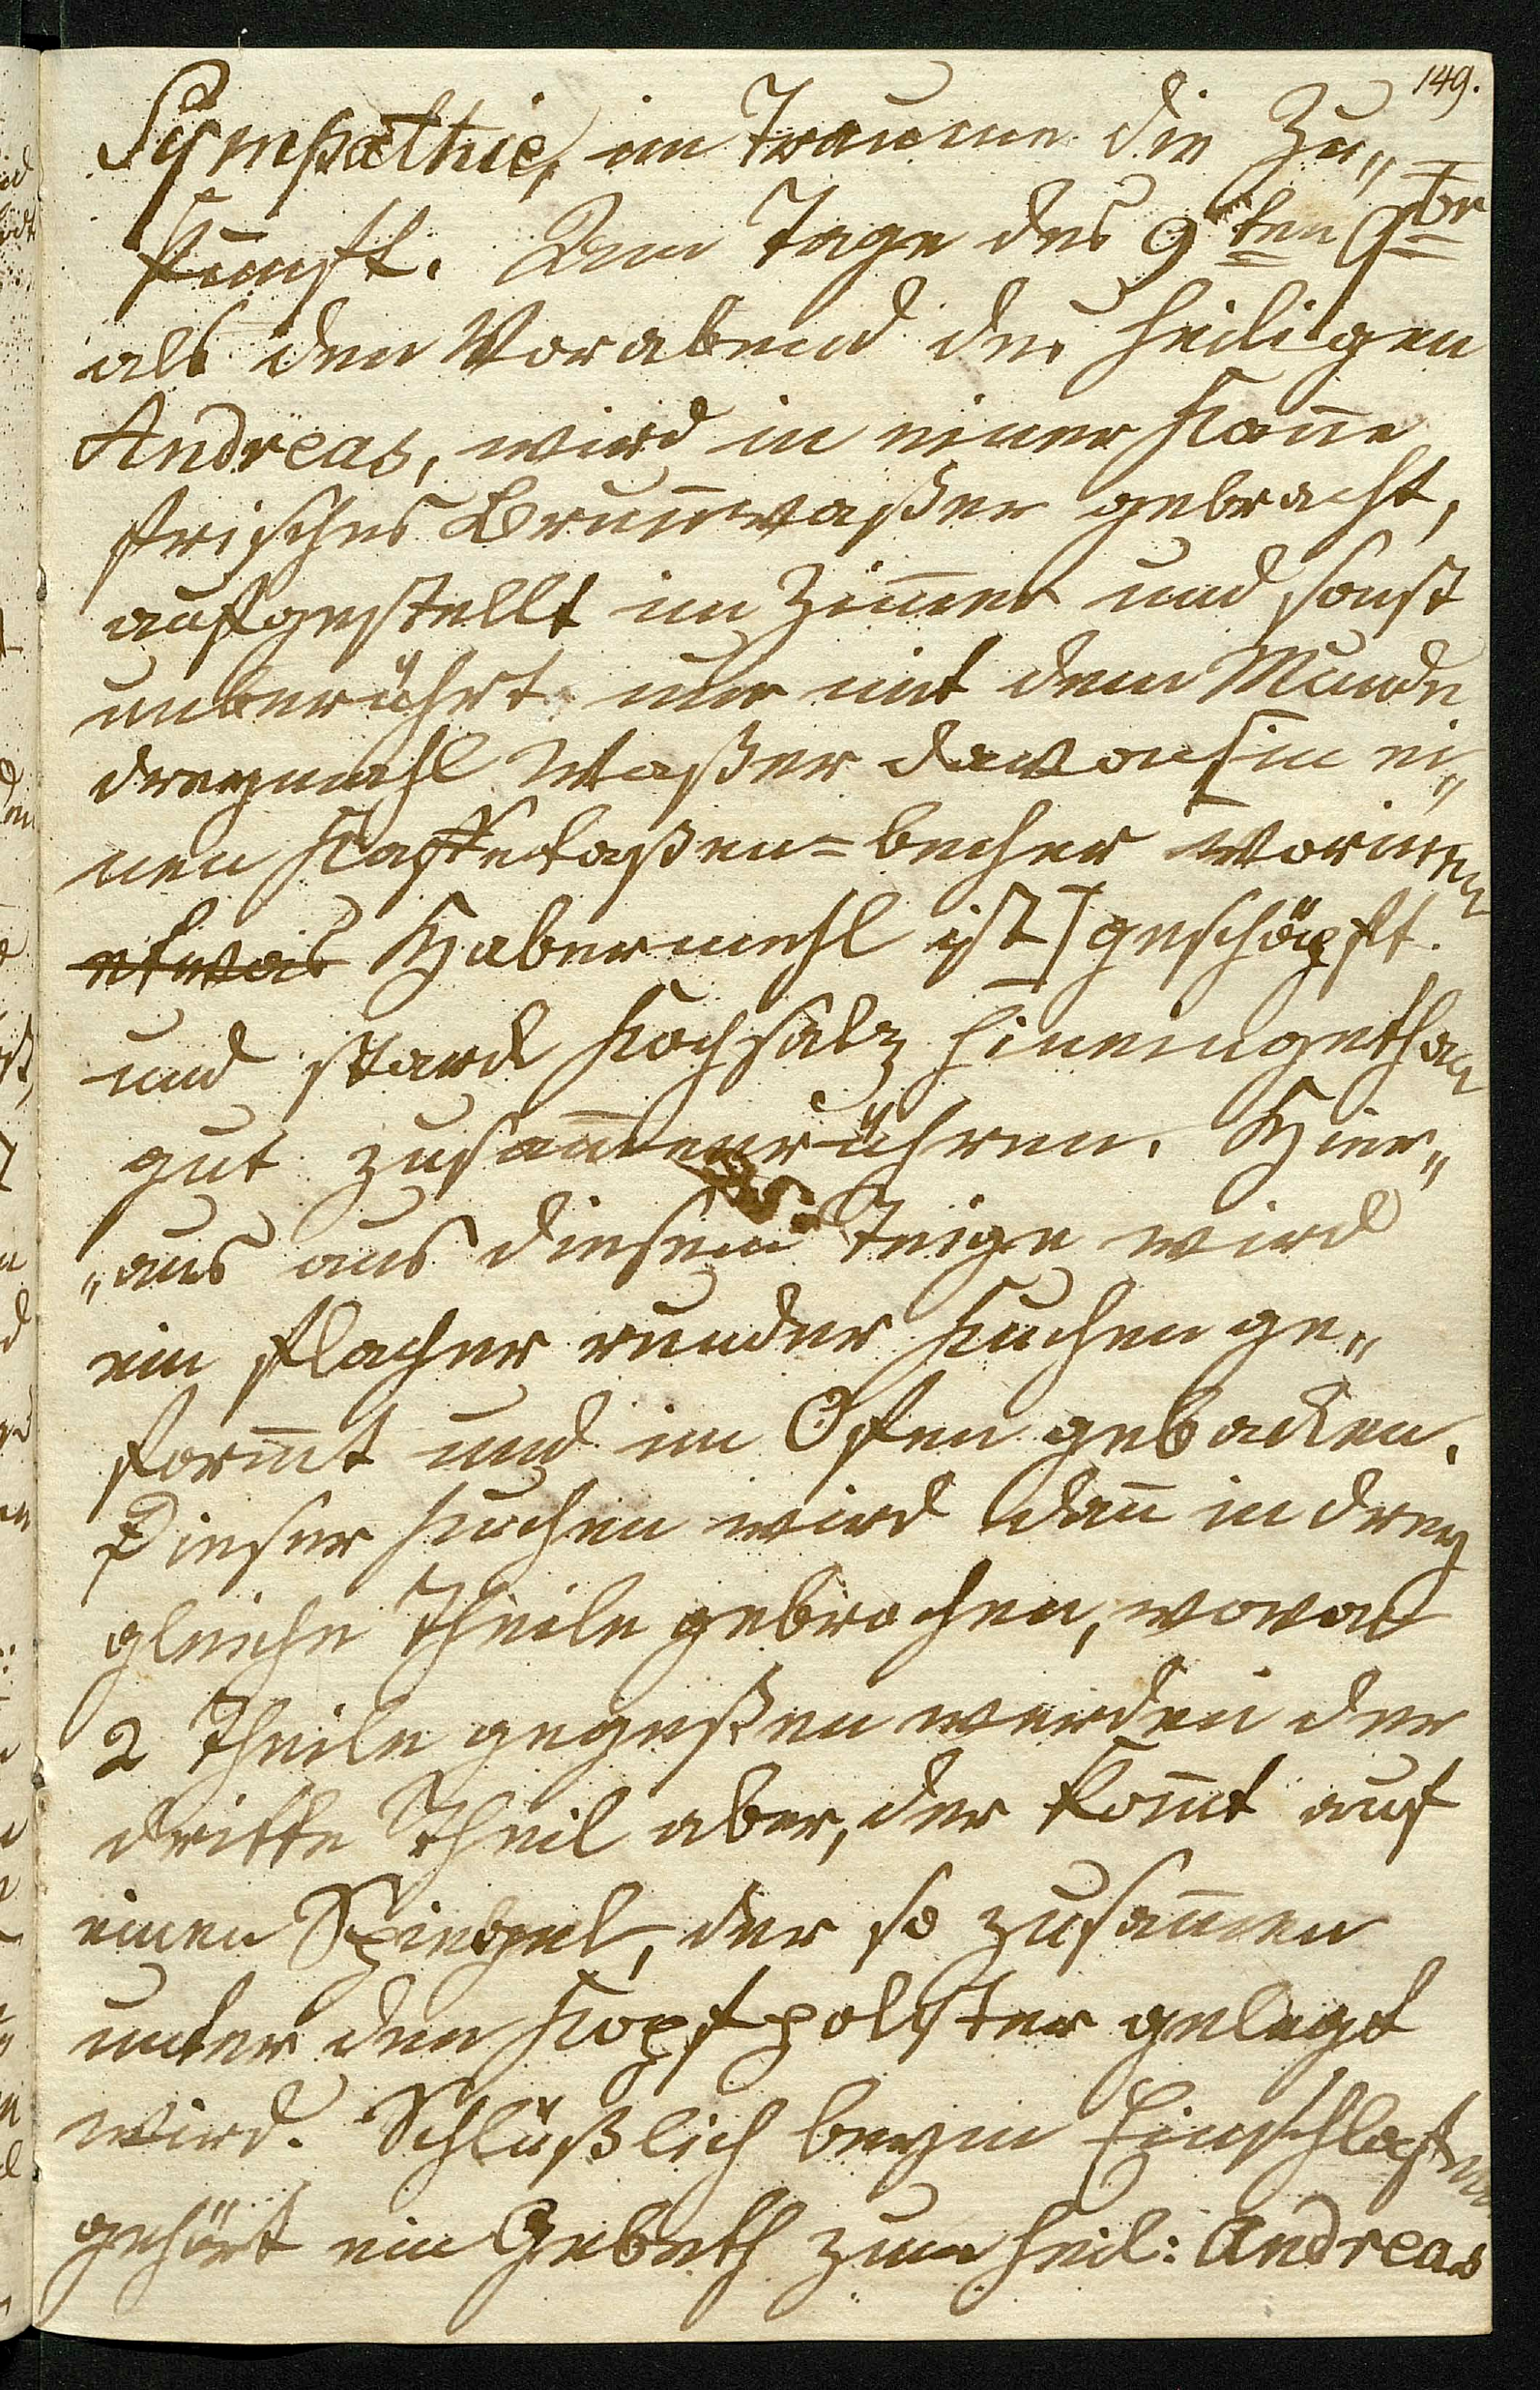 149.
Sympathie, im Traume die Zu„
kunft. Am Tage des 9ten Xbr
als den Vorabend des heiligen
Andreas, wird in einer Kan̄e
frisches Brun̄waßer gebracht,
aufgestellt im Zim̄er und sonst
unberührt nur mit dem Munde
dreymahl Waßer davon [in ei„
nen Kaffetaßen=becher worinen
etwas Habermehl ist] geschöpft.
und stark Kochsalz hineingethan
gut zusam̄enrühren. Hier„
„aus aus diesem Teige wird
ein flacher runder Kuchen ge„
form̄t und im Ofen gebacken.
Dieser Kuchen wird dan̄ in drey
gleiche Theile gebrochen, wovon
2 Theile gegeßen werden der
dritte Theil aber, der kom̄t auf
einen Spiegel, der so zusam̄en
unter den Kopfpolster gelegt
wird. Schlüßlich beym Einschlafen
gehört ein Gebeth zum heil: Andreas